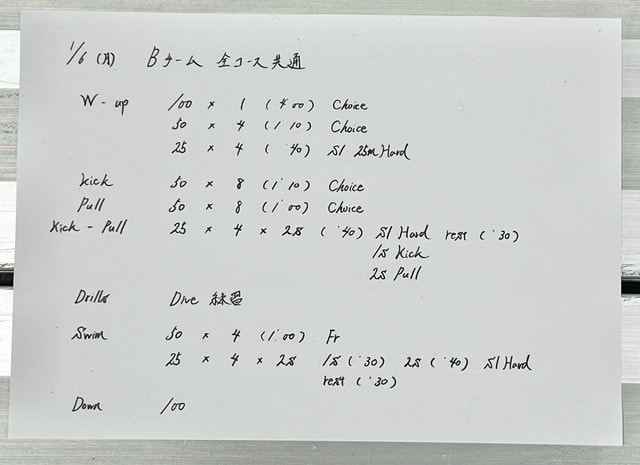 1/6 (月) Bチーム 全コース共通
W-up 100 × 1 (4'00) Choice
50 × 4 (1'10) Choice
25 × 4 ('40) S1 25m Hard
Kick 50 × 8 (1'10) Choice
Pull 50 × 8 (1'00) Choice
Kick-Pull 25 × 4 × 2s ('40) S1 Hard rest ('30)
1s Kick
2s Pull
Drills Dive 練習
Swim 50 × 4 (1'00) Fr
25 × 4 × 2s 1s ('30) 2s ('40) S1 Hard
rest ('30)
Down 100